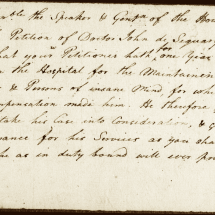 able the Speaker & Gentn. of the Hou
Petition of Doctor John de Sequay
hat your Petitioner hath for one Year
the Hospital for the Maintenance
& Persons of insane Mind, for wh
mpensation made him. He therefore
take his Case into Consideration, &
ance for his Services as you sha
he as in duty bound will ever pra